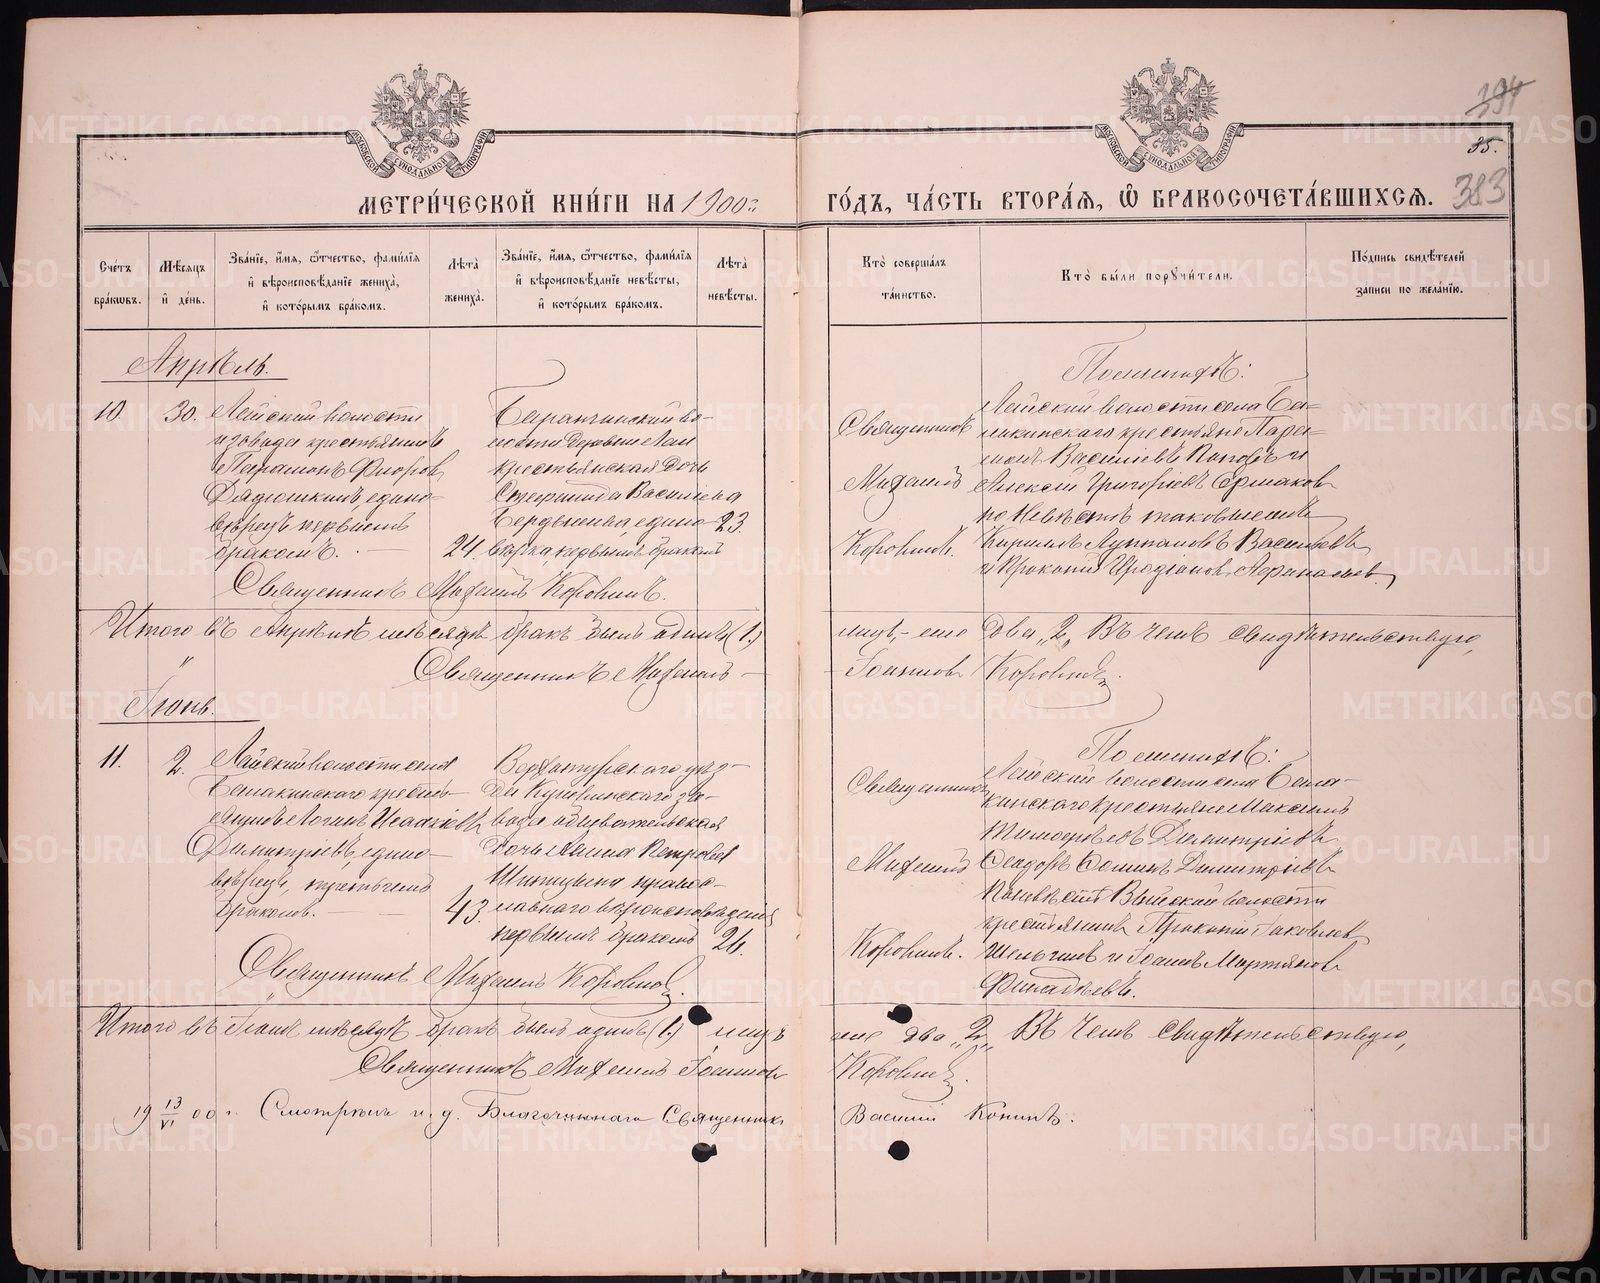 МОСКОВСКОЙ СѴНОДАЛЬНОЙ ТИПОГРАФІИ
МОСКОВСКОЙ СѴНОДАЛЬНОЙ ТИПОГРАФІИ
394
35.
383
МЕТРИ́ЧЕСКОЙ КНИ́ГИ НА 1900 г. ГО́ДЪ, ЧА́СТЬ ВТОРА́Я, Ѿ БРАКОСОЧЕТА́ВШИХСЯ.
Сче́тъ бра́кѡвъ.
Мѣ́сяцъ и҆ де́нь.
Зва́нїе, и҆́мя, ѻ҆́тчество, фами́лїя и҆ вѣроисповѣ́данїе жениха̀, и҆ кото́рымъ бра́комъ.
Лѣ́та̀ жениха̀.
Зва́нїе, и҆́мя, ѻ҆́тчество, фами́лїя и҆ вѣроисповѣ́данїе невѣ́сты, и҆ кото́рымъ бра́комъ.
Лѣ́та̀ невѣ́сты.
Кто̀ соверша́лъ та́инство.
Кто̀ бы́ли порꙋчи́тели.
По́дпись свидѣ́телей за́писи по жела́нїю.
Апрѣль.
10.
30.
Лайской волости
и завода крестьянинъ
Парамонъ Флоровъ
Дядюшкинъ, едино-
вѣрецъ первымъ
бракомъ.
24.
Баранчинской во-
лости деревни Лаи
крестьянская дочь
Василіева
едино-
вѣрка первымъ бракомъ
23
Священникъ
Михаилъ
Коровинъ.
По женихѣ:
Лайской волости села Ба-
лакинскаго крестьяне Пара-
монъ Василіевъ Поповъ и
Алексій Григоріевъ Ермаковъ
по Невѣстѣ таковыеже
Кириллъ Василіевъ
и Прокопій Иродіоновъ
Священникъ Михаилъ Коровинъ.
Итого въ Апрѣлѣ мѣсяцѣ бракъ былъ одинъ (1.) лицъ-же два „2„ Въ чемъ свидѣтельствую,
Священникъ Михаилъ Іоанновъ Коровинъ.
Іюнь.
11.
2.
Лайской волости села
Балакинскаго кресть-
янинъ Логинъ Исаакіевъ
Димитріевъ, едино-
вѣрецъ, третьимъ
бракомъ.
43.
Верхотурскаго уѣз-
да Кушвинскаго за-
вода обывательская
дочь Анна Петрова
Шипицына правос-
лавнаго вѣроисповѣданія
первымъ бракомъ
24.
Священникъ
Михаилъ
Коровинъ.
По женихѣ:
Лайской волости села Бала-
кинскаго крестьяне Максимъ
Тимоѳеевъ Димитріевъ
Ѳеодоръ Ѳоминъ Димитріевъ
По невѣстѣ Выйской волости
крестьянинъ Прокопій Іаковлевъ
и Іоаннъ Мартыновъ
Финадѣевъ.
Священникъ Михаилъ Коровинъ.
Итого въ Іюнѣ мѣсяцѣ бракъ былъ одинъ (1.) лицъ же два „2„ Въ чемъ свидѣтельствую,
Священникъ Михаилъ Іоанновъ Коровинъ.
19 13/VI 00 г. Смотрѣлъ и. д. Благочиннаго Священникъ Василій Конинъ.
METRIKI.GASO-URAL.RU